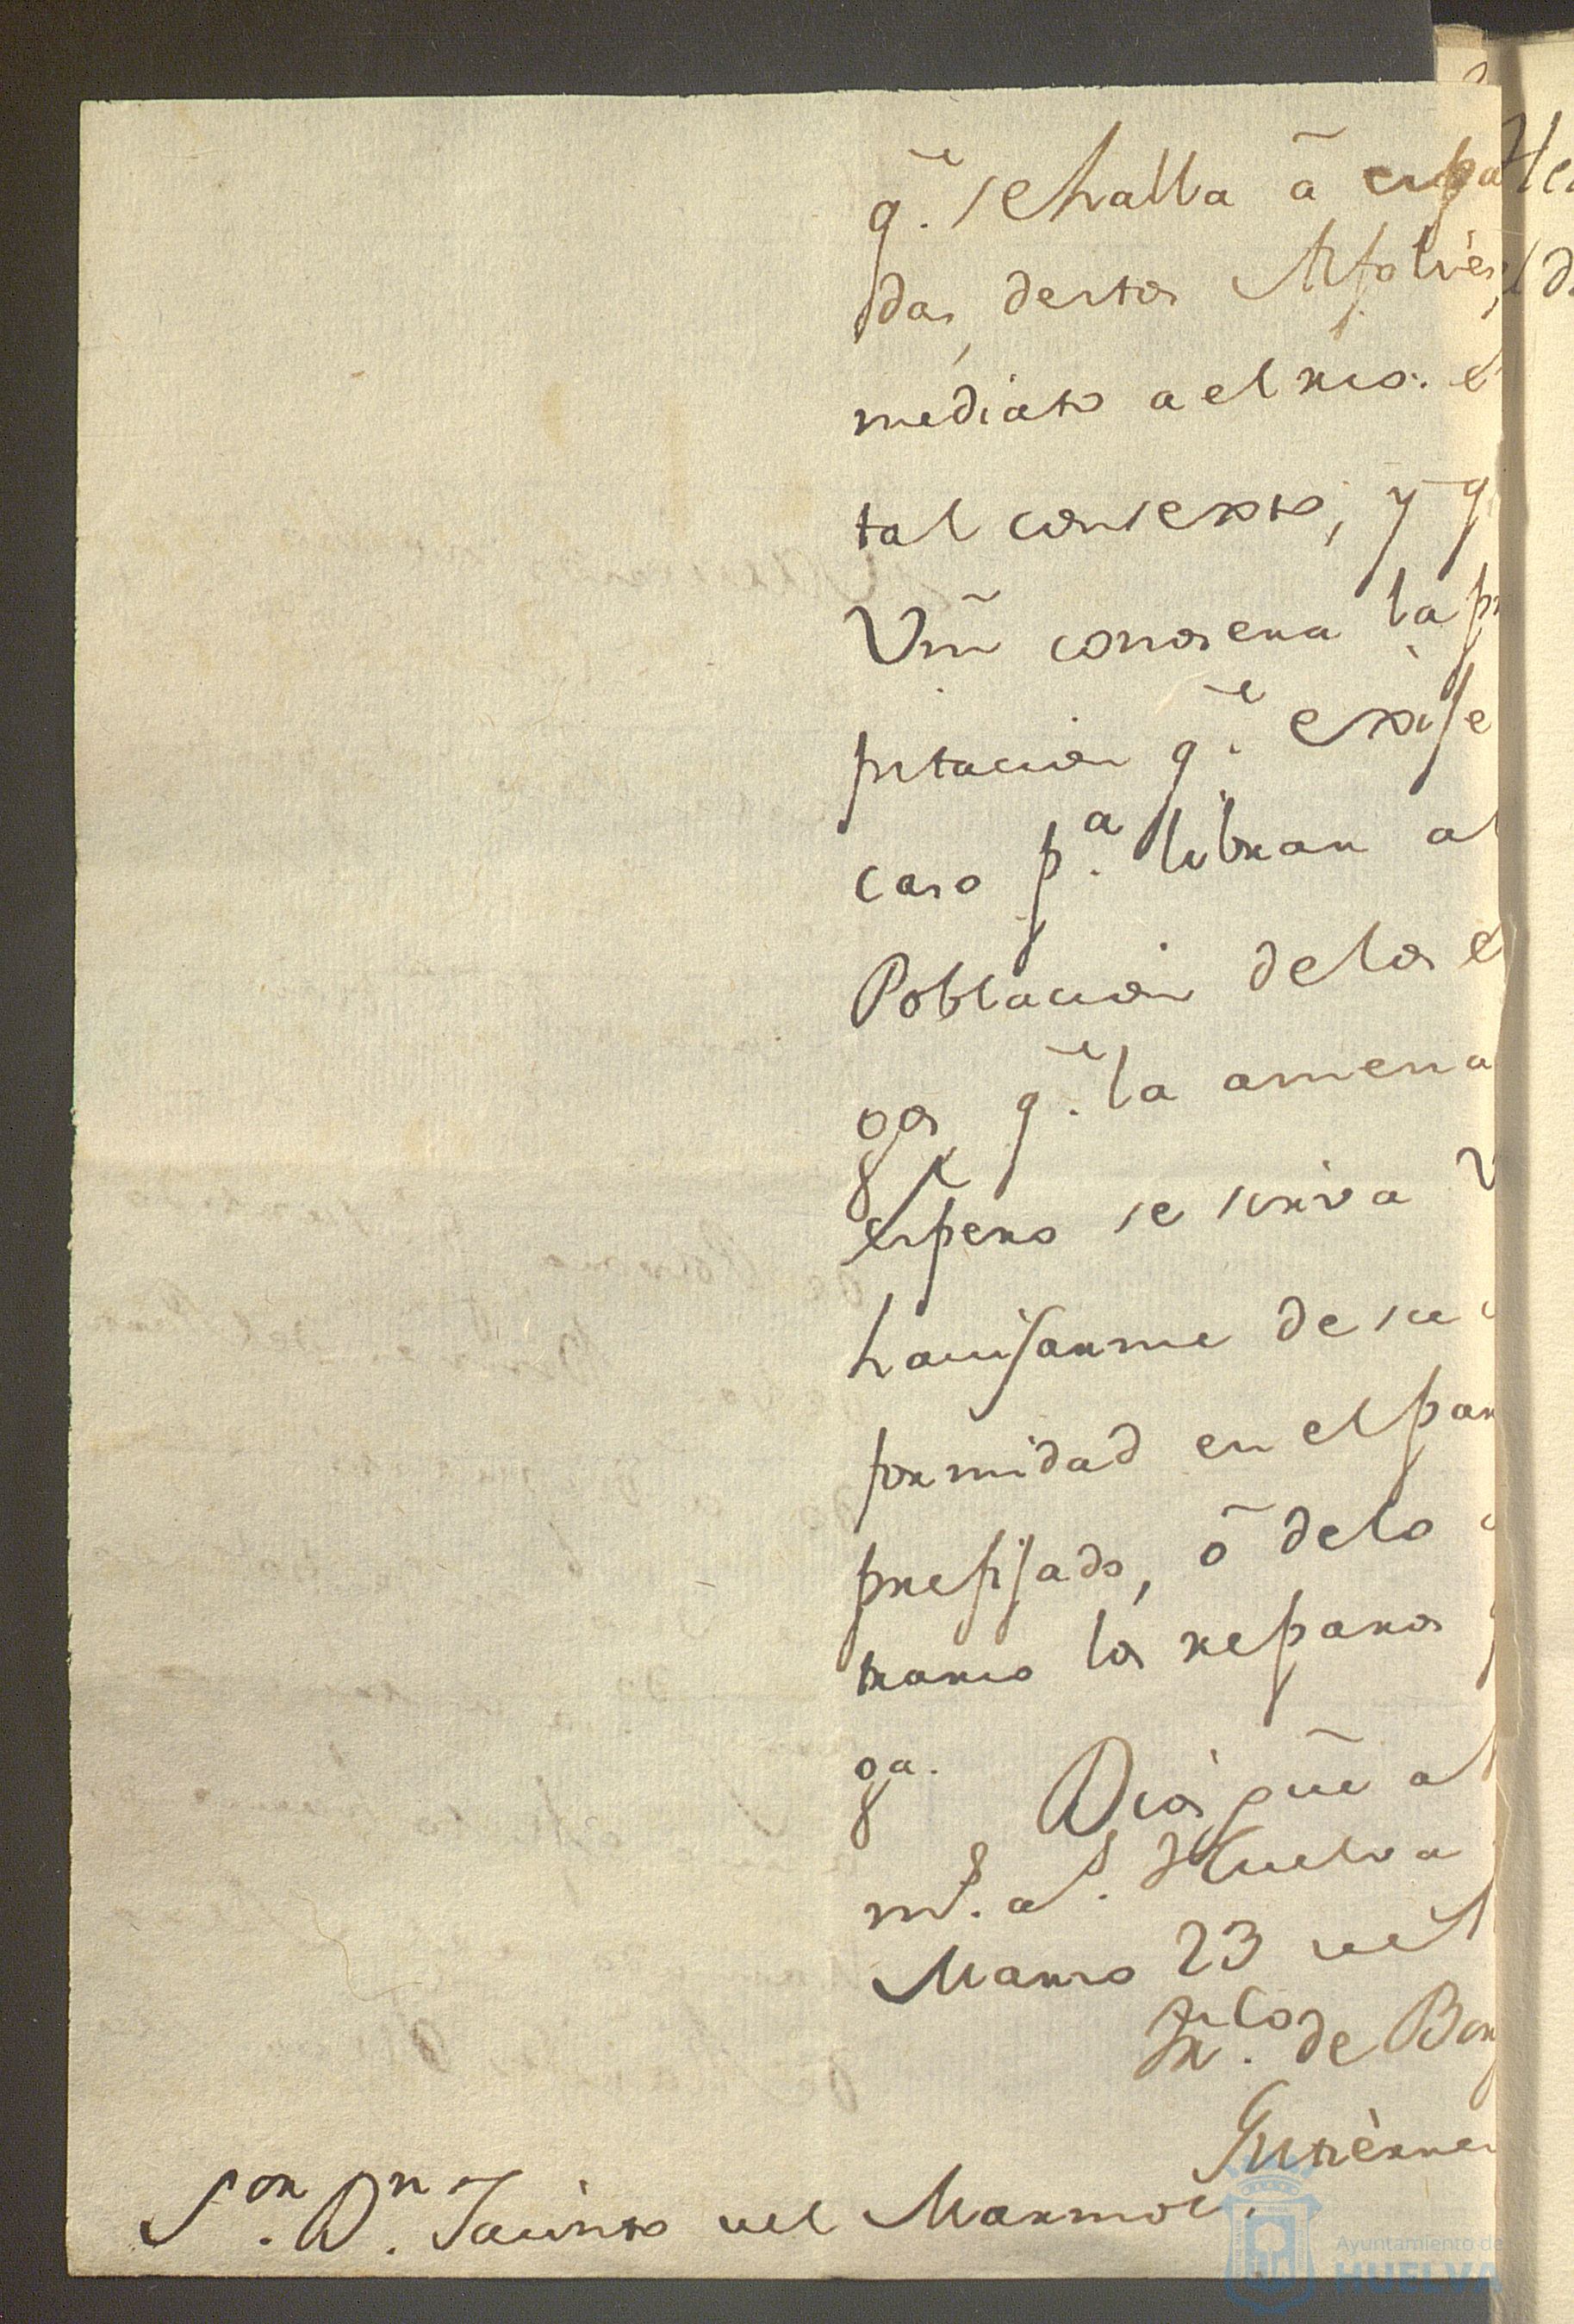 q.e se halla â espa
das, destos Alfolies,
mediato a el rio. e
tal contexto, y q
Vm̃ conoserá la pr
pitacion q.e exije
caso p.a librar al
Poblacion de los e
gos q.e la amena
espero se sirva V
havisarme de su c
formidad en el par
prefijado, ô de lo c
trario los reparos q
ga. Dios gũe al
m.s a.s Huelva
Marzo 23 de
Fr.co de Bor
Gutièrrez
S.or D.n Jacinto del Marmol.
Ayuntamiento de
HUELVA